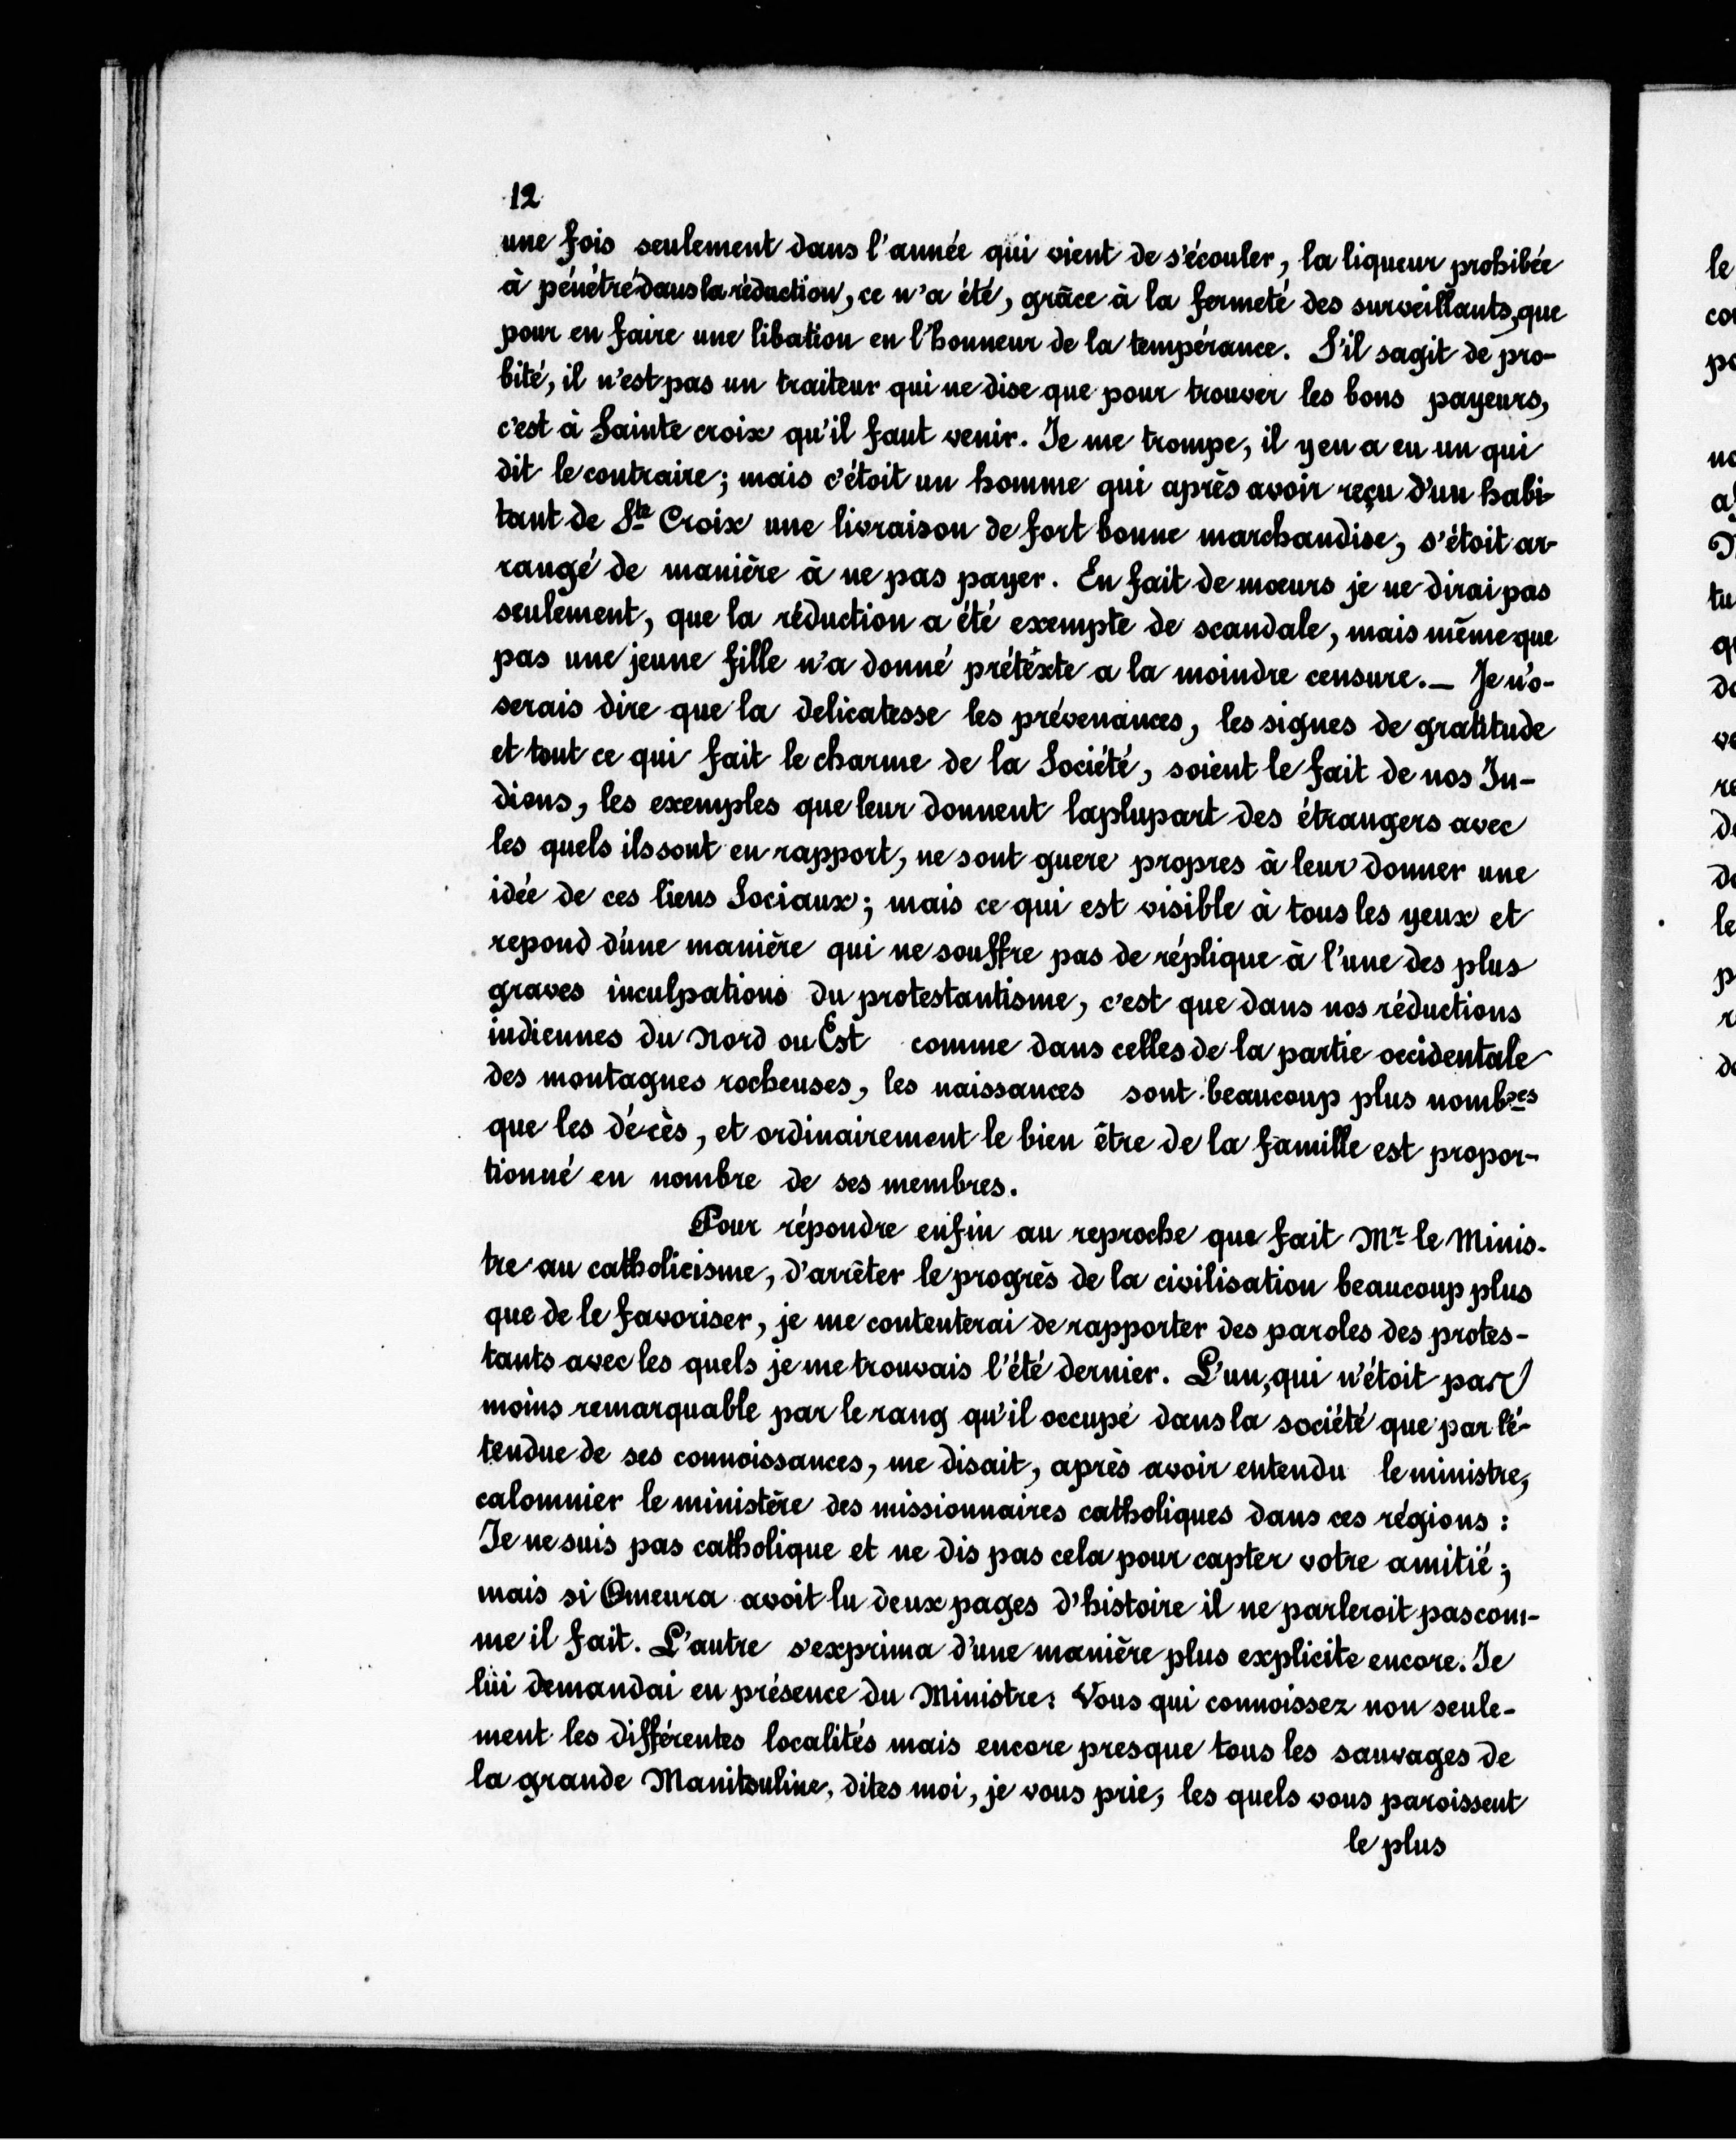 12
une fois seulement dans l'année qui vient de s'écouler, la liqueur prohibée
à pénétré dans la réduction, ce n'a été, grâce à la fermeté des surveillants, que
pour en faire une libation en l'honneur de la tempérance. S'il sagit de pro-
bité, il n'est pas un traiteur qui ne dise que pour trouver les bons payeurs,
c'est à Sainte croix qu'il faut venir. Je me trompe, il y en a eu un qui
dit le contraire; mais c'étoit un homme qui après avoir reçu d'un habi-
tant de Ste Croix une livraison de fort bonne marchandise, s'étoit ar-
rangé de manière à ne pas payer. En fait de mœurs je ne dirai pas
seulement, que la réduction a été exempte de scandale, mais même que
pas une jeune fille n'a donné prétéxte a la moindre censure. — Je n'o-
serais dire que la delicatesse les prévenances, les signes de gratitude
et tout ce qui fait le charme de la Société, soient le fait de nos In-
diens, les exemples que leur donnent laplupart des étrangers avec
les quels ils sont en rapport, ne sont guere propres à leur donner une
idée de ces liens Sociaux; mais ce qui est visible à tous les yeux et
repond d'une manière qui ne souffre pas de réplique à l'une des plus
graves inculpations du protestantisme, c'est que dans nos réductions
indiennes du Nord ou Est comme dans celles de la partie occidentale
des montagnes rocheuses, les naissances sont beaucoup plus nombres
que les décès, et ordinairement le bien être de la famille est propor-
tionné en nombre de ses membres.
Pour répondre enfin au reproche que fait Mr le Minis-
tre au catholicisme, d'arrêter le progrès de la civilisation beaucoup plus
que de le favoriser, je me contenterai de rapporter des paroles des protes-
tants avec les quels je me trouvais l'été dernier. L'un, qui n'étoit pas
moins remarquable par le rang qu'il occupé dans la société que par l'é-
tendue de ses connoissances, me disait, après avoir entendu le ministre,
calomnier le ministère des missionnaires catholiques dans ces régions :
Je ne suis pas catholique et ne dis pas cela pour capter votre amitié;
mais si Omeura avoit lu deux pages d'histoire il ne parleroit pas com-
me il fait. L'autre s'exprima d'une manière plus explicite encore. Je
lui demandai en présence du Ministre: Vous qui connoissez non seule-
ment les différentes localités mais encore presque tous les sauvages de
la grande Manitouline, dites moi, je vous prie, les quels vous paroissent
le plus